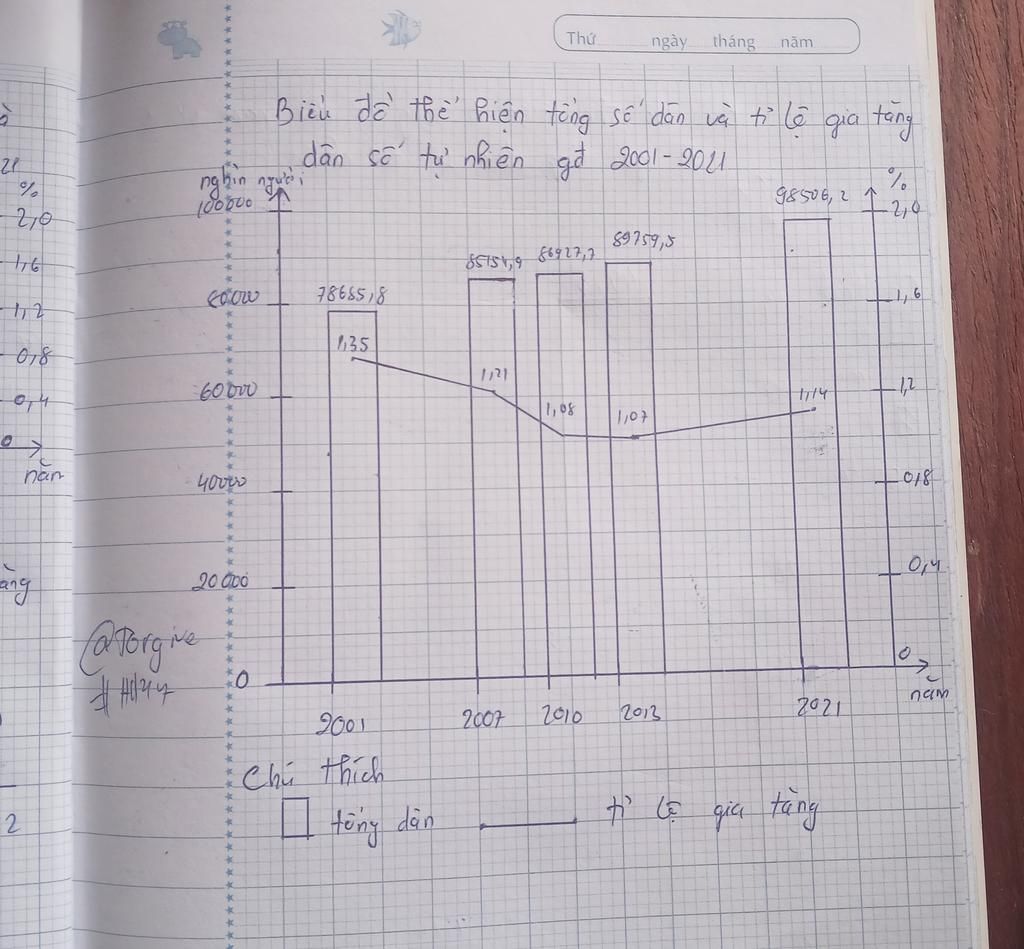 Thứ ngày tháng năm
Biểu đồ thể hiện tổng số dân và tỉ lệ gia tăng
dân số tự nhiên gđ 2001-2021
nghìn người
%
100000
80000
60000
40000
20000
0
2,0
1,6
1,2
0,8
0,4
0
78685,8
85154,9
86927,7
89759,5
98506,2
1,35
1,21
1,08
1,07
1,14
2001
2007
2010
2013
2021
năm
Chú thích
tổng dân
tỉ lệ gia tăng
21
%
2,0
1,6
1,2
0,8
0,4
0
năm
ăng
2